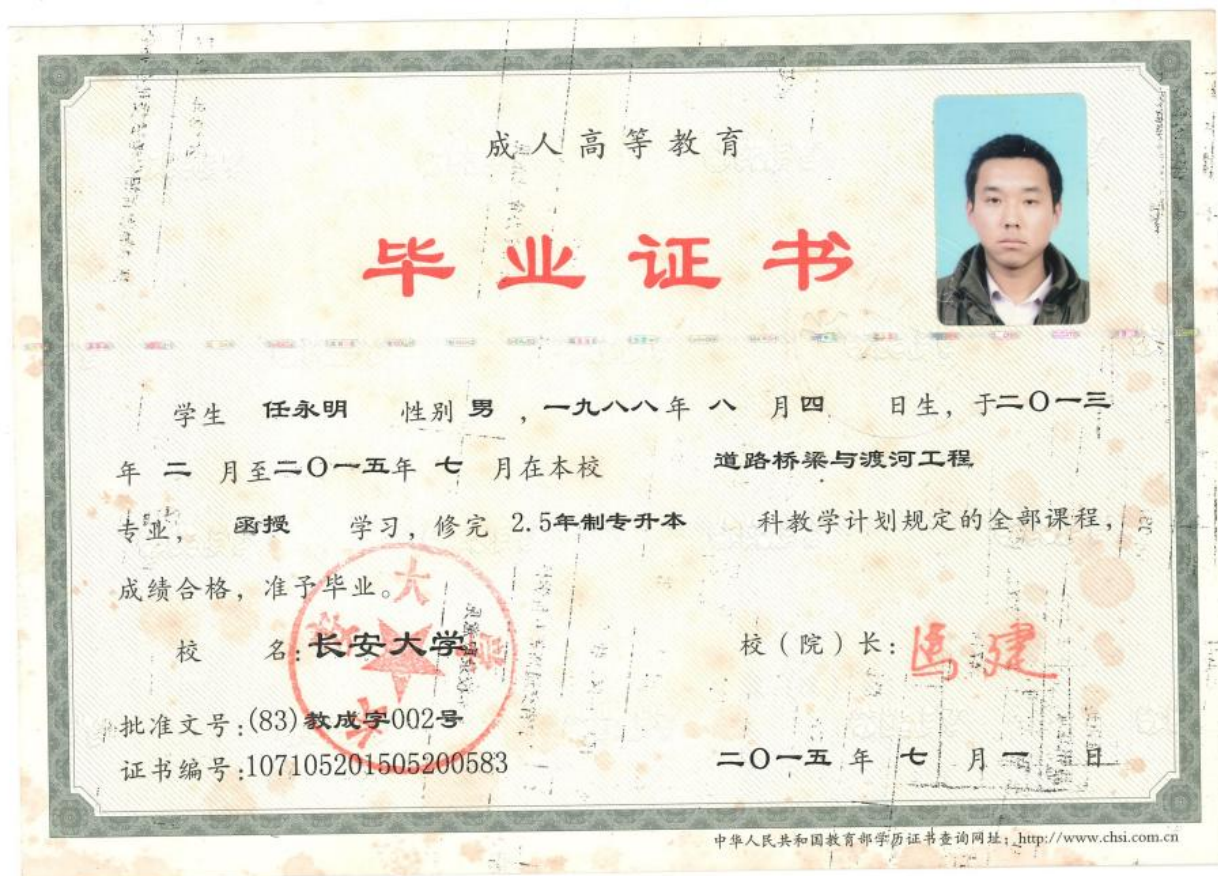 成人高等教育
毕业证书
学生 任永明 性别 男 , 一九八八年 八 月四 日生, 于二〇一三
年 二 月至二〇一五年 七 月在本校 道路桥梁与渡河工程
专业, 函授 学习, 修完 2.5年制专升本 科教学计划规定的全部课程,
成绩合格, 准予毕业。
校 名:长安大学 校(院)长: 马建
批准文号:(83)教成字002号
证书编号:107105201505200583 二〇一五 年 七 月 一 日
中华人民共和国教育部学历证书查询网址: http://www.chsi.com.cn